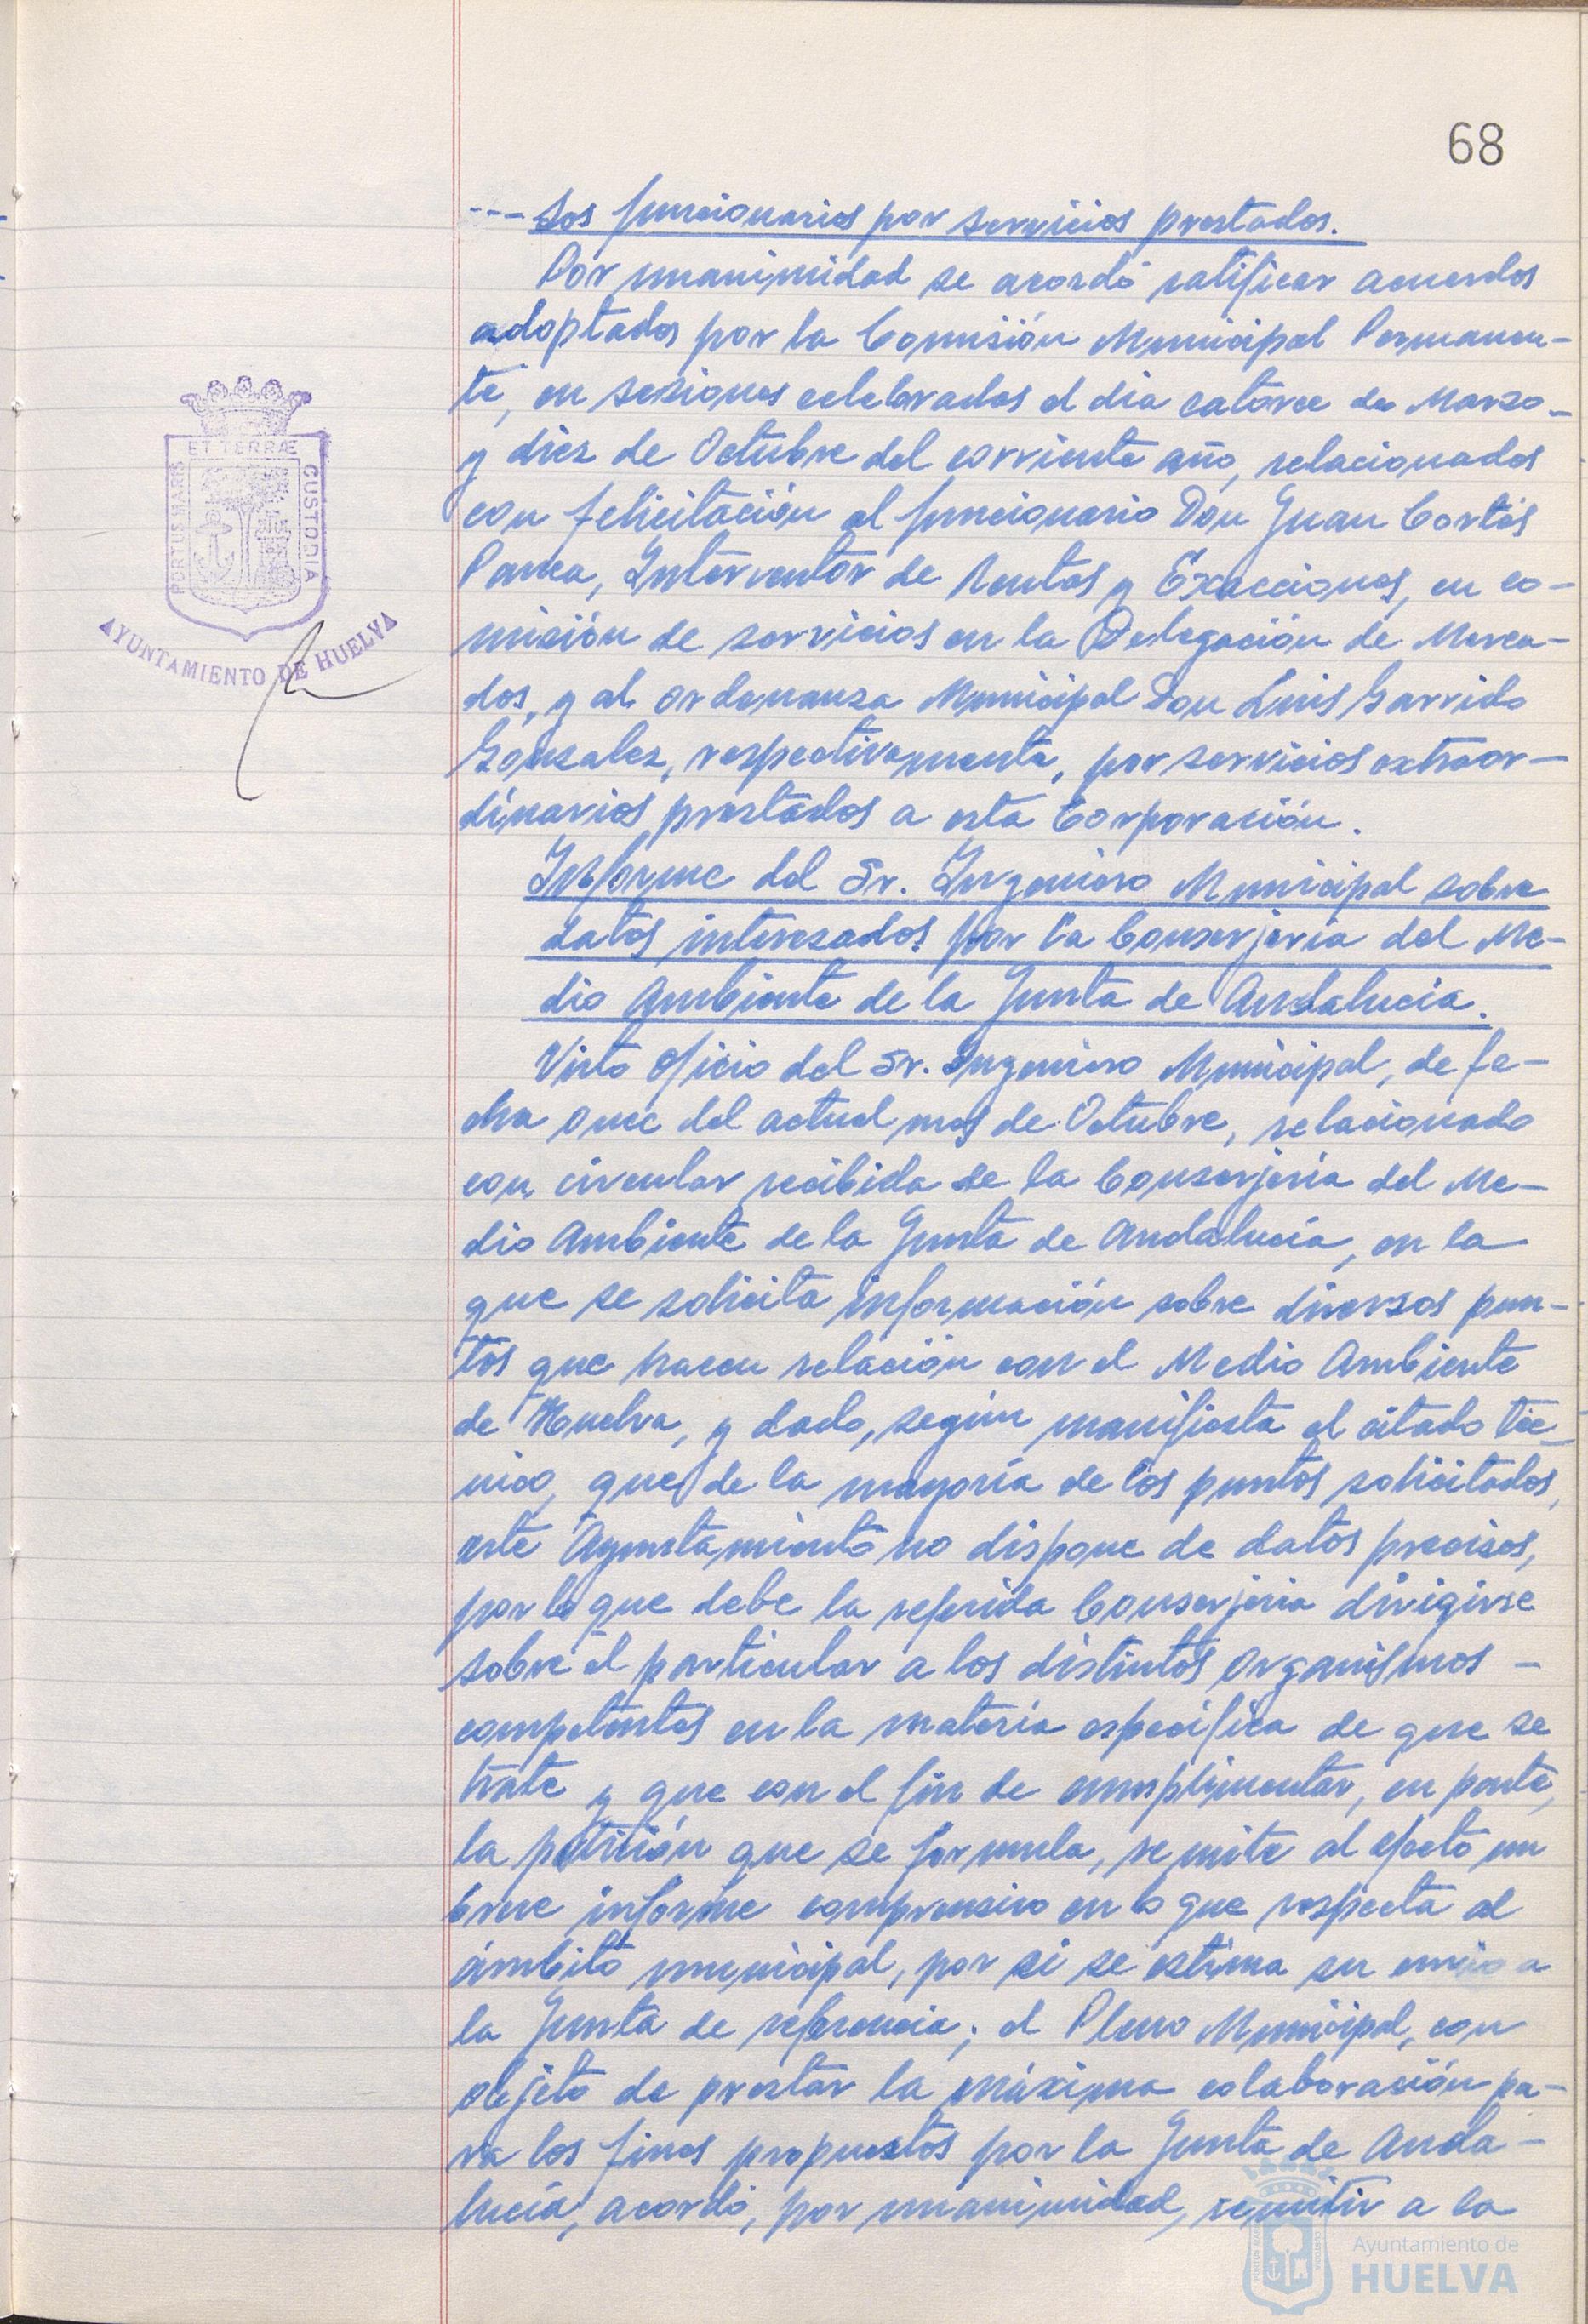 68
--- Los funcionarios por servicios prestados.
Por unanimidad se acordó ratificar acuerdos
adoptados por la Comisión Municipal Permanen-
te, en sesiones celebradas el dia catorce de Marzo-
y diez de Octubre del corriente año, relacionados
con felicitación al funcionario Don Juan Cortés
Parea, Interventor de Rentas y Exacciones, en co-
misión de servicios en la Delegación de Merca-
dos, y al ordenanza Municipal Don Luis Garrido
Gonzalez, respectivamente, por servicios extraor-
dinarios prestados a esta Corporación.
Informe del Sr. Ingeniero Municipal sobre
datos interesados por la Conserjeria del Me-
dio Ambiente de la Junta de Andalucia.
Visto oficio del Sr. Ingeniero Municipal, de fe-
cha once del actual mes de Octubre, relacionado
con circular recibida de la Conserjería del Me-
dio Ambiente de la Junta de Andalucía, en la
que se solicita información sobre diversos pun-
tos que hacen relación con el Medio Ambiente
de Huelva, y dado, según manifiesta el citado téc-
nico, que de la mayoría de los puntos solicitados,
este Ayuntamiento no dispone de datos precisos,
por lo que debe la referida Conserjeria dirigirse
sobre el particular a los distintos organismos -
competentes en la materia especifica de que se
trate y que con el fin de cumplimentar, en parte,
la petición que se formula, remite al efecto un
breve informe comprensivo en lo que respecta al
ámbito municipal, por si se estima su envio a
la Junta de referencia; el Pleno Municipal, con
objeto de prestar la máxima colaboración pa-
ra los fines propuestos por la Junta de Anda-
lucía, acordó, por unanimidad, remitir a la
PORTUS MARIS
ET TERRÆ
CUSTODIA
AYUNTAMIENTO DE HUELVA
Ayuntamiento de
HUELVA